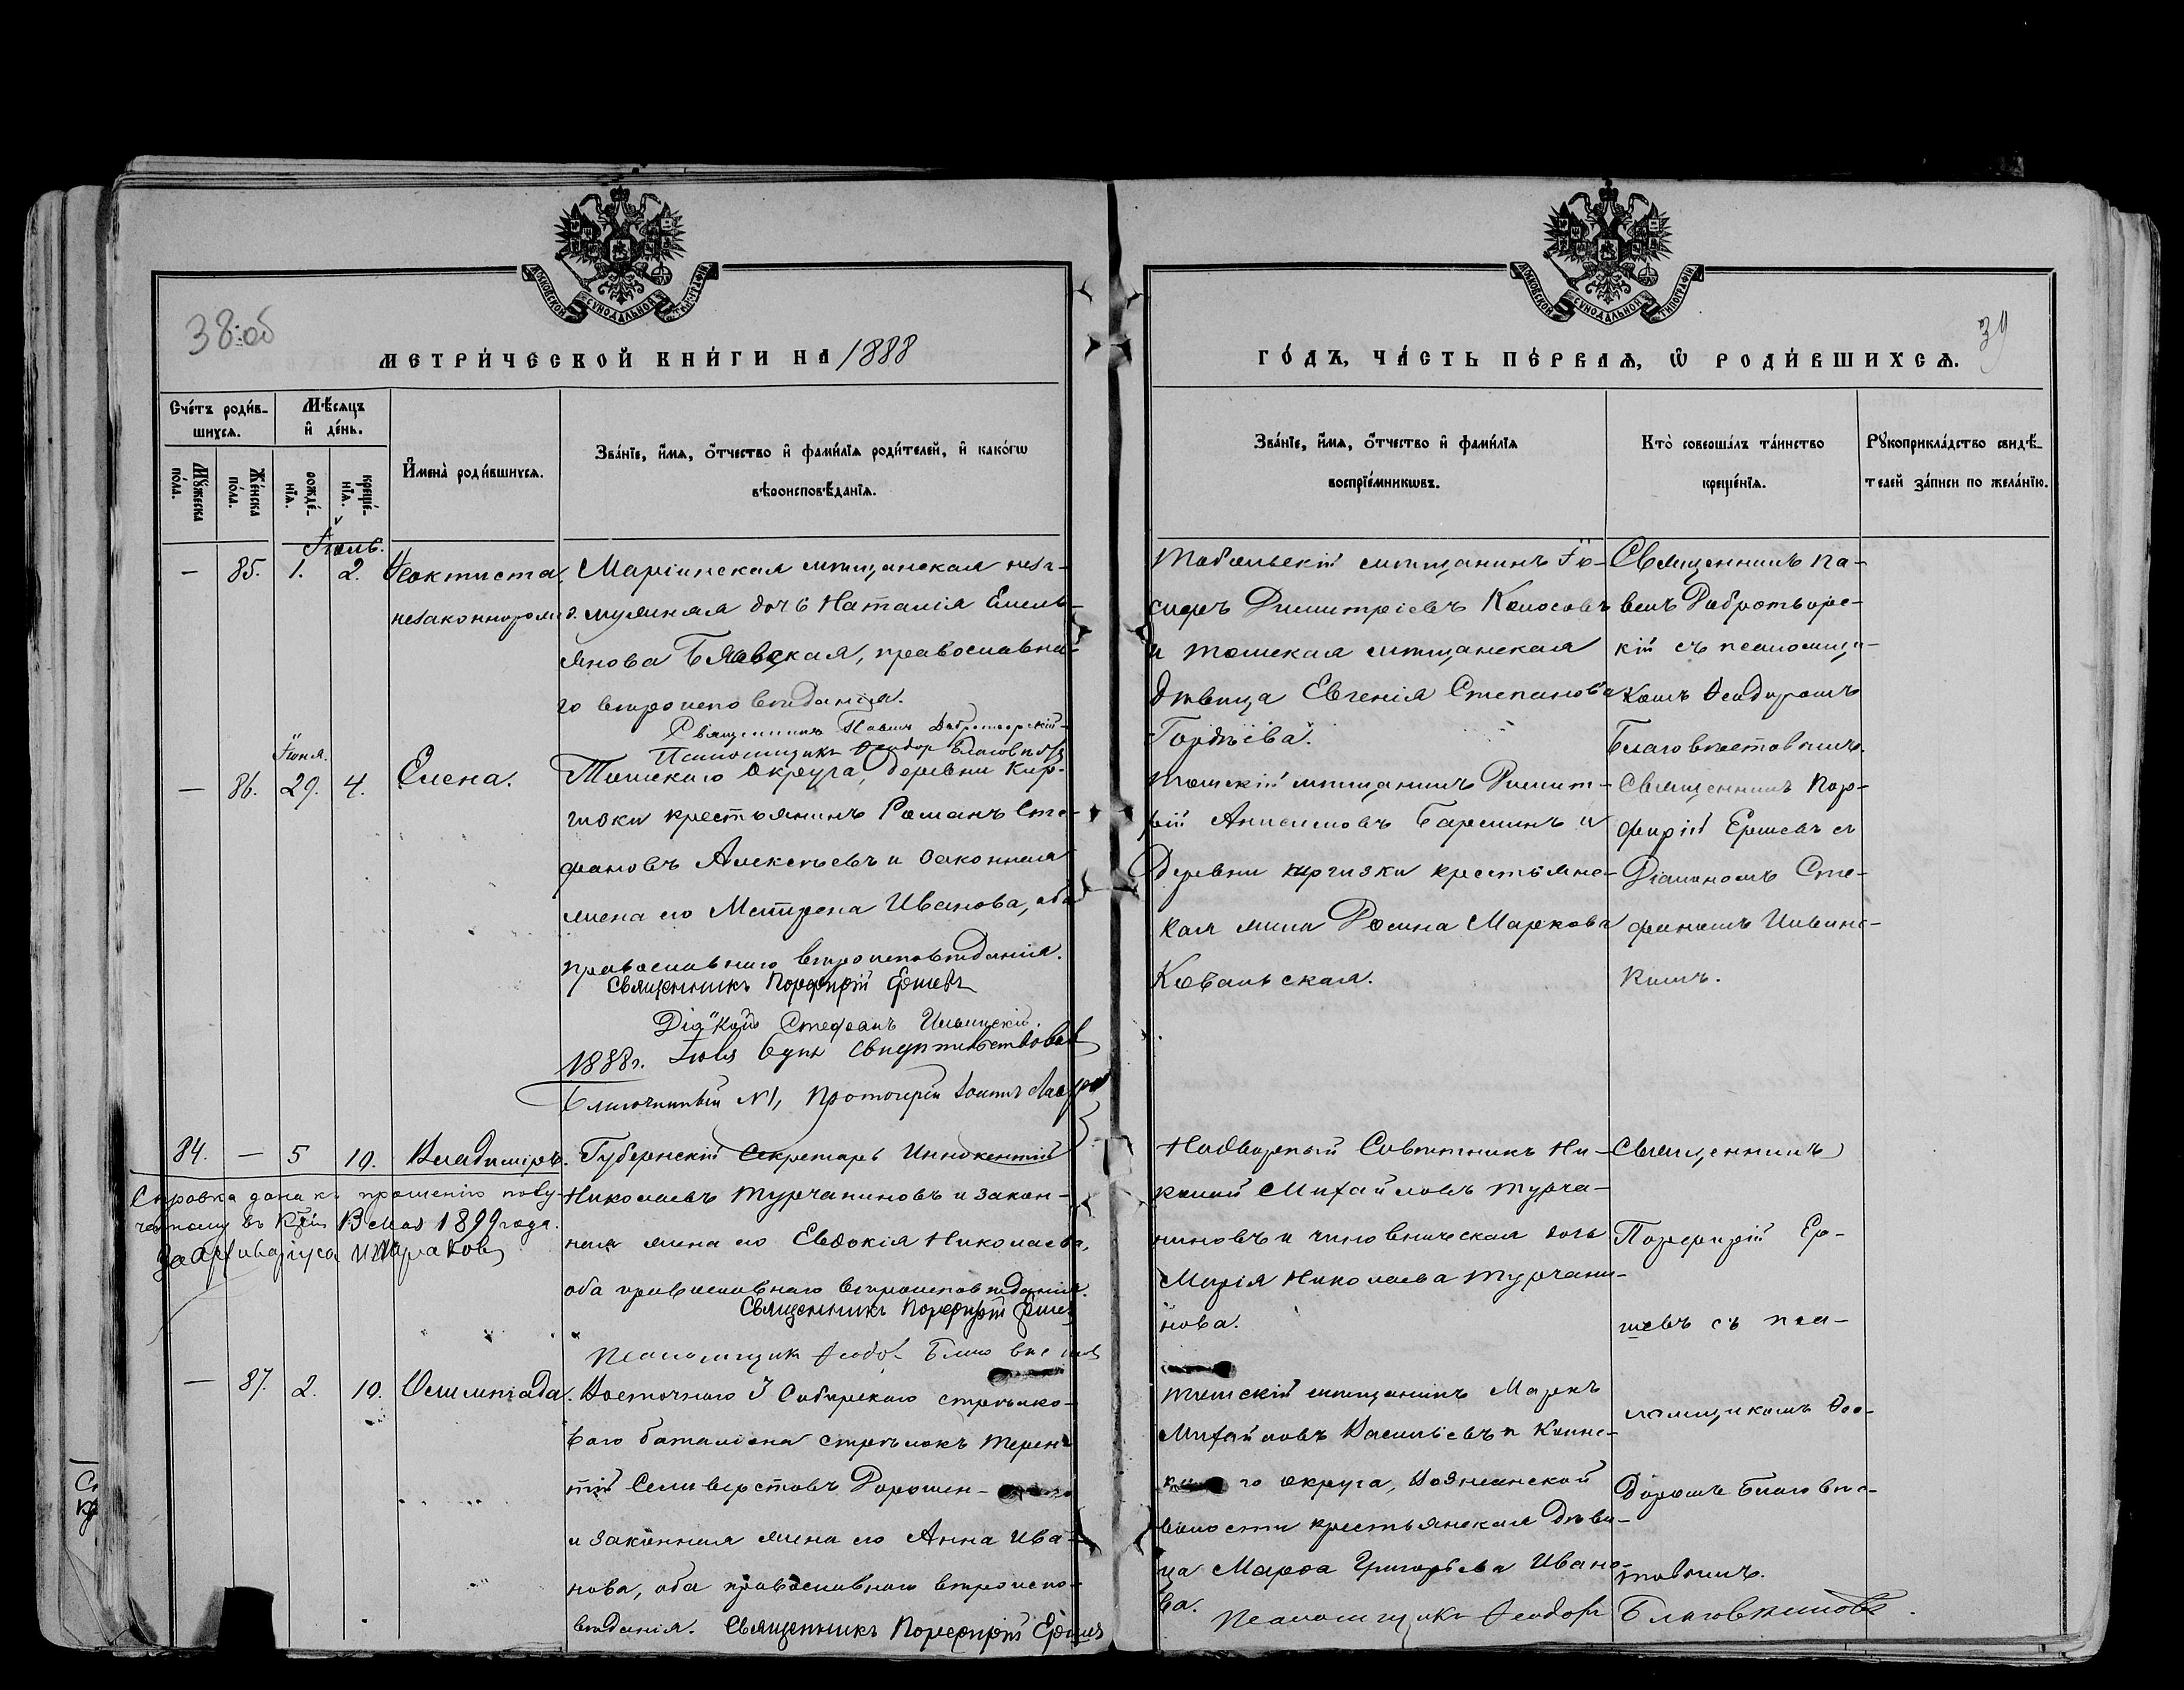 38 об
39
МОСКОВСКОЙ СѴНОДАЛЬНОЙ ТИПОГРАФІИ
МОСКОВСКОЙ СѴНОДАЛЬНОЙ ТИПОГРАФІИ
МЕТРИ́ЧЕСКОЙ КНИ́ГИ НА 1888
ГО́ДЪ, ЧА́СТЬ ПЕ́РВАѦ, Ѡ РОДИ́ВШИХСѦ.
Сче́тъ роди́в-
шихсѧ.
Мꙋ́жеска по́ла.
Же́нска по́ла.
Мѣ́сѧцъ
и де́нь.
рожде́-
нїѧ.
креще́-
нїѧ.
И҆мена̀ роди́вшихсѧ.
Зва́нїе, и҆́мѧ, ѻ҆́тчество и҆ фами́лїѧ роди́телей, и҆ како́гѡ
вѣроисповѣ́данїѧ.
Зва́нїе, и҆́мѧ, ѻ҆́тчество и҆ фами́лїѧ
воспрїе́мникѡвъ.
Кто̀ соверша́лъ та́инство
креще́нїѧ.
Рꙋкоприкла́дство свидѣ́-
телей за́писи по жела́нїю.
Іюль.
— 85. 1. 2. Ѳеоктиста
незаконнорожд.
Маріинская мѣщанская неза-
мужняя дочь Наталія Емель-
янова, православна-
го вѣроисповѣданія.
Священникъ Павелъ Добротворскій
Псаломщикъ Ѳеодоръ Благовѣстовъ
Тобольскій мѣщанинъ Іо-
сифъ Димитріевъ Колосовъ
и томская мѣщанская
дѣвица Евгенія Степанова
Гордѣева.
Священникъ Па-
велъ Добротворс-
кій съ псаломщи-
комъ Ѳеодоромъ
Благовѣстовымъ.
Іюня.
— 86. 29. 4. Елена.
Томскаго округа, деревни Кир-
гизки крестьянинъ Романъ Сте-
фановъ Алексѣевъ и законная
жена его Матрена Иванова, оба
православнаго вѣроисповѣданія.
Священникъ Порфирій Ершевъ
Діаконъ Стефанъ Ильинскій.
1888 г. Іюля свидѣтельствовалъ
Благочинный №1, Протоіерей Іоаннъ
Томскій мѣщанинъ Димит-
рій Анисимовъ и
деревни киргизки крестьянс-
кая жена Домна Маркова
Ковальская.
Священникъ Пор-
фирій Ершевъ съ
Діакономъ Сте-
фаномъ Ильинс-
кимъ.
84. — 5 10. Владиміръ.
Справка дана къ прошенію полу-
ченному въ 13 мая 1899 года.
За Архиваріуса
Губернскій Секретарь Иннокентій
Николаевъ Турчаниновъ и закон-
ная жена его Евдокія Николаева,
оба православнаго вѣроисповѣданія.
Священникъ Порфирій Ершевъ
Псаломщикъ Ѳеодоръ Благовѣстовъ
Надворный Совѣтникъ Ни-
колай Михайловъ Турча-
ниновъ и чиновническая дочь
Марія Николаева Турчани-
нова.
Священникъ
Порфирій Ер-
шевъ съ пса-
ломщикомъ Ѳео-
доромъ Благовѣс-
товымъ.
— 87. 2. 10. Олимпіада.
Восточнаго I Сибирскаго стрѣлко-
ваго баталіона стрѣлокъ Терен-
тій Селиверстовъ Дорошен-
и законная жена его Анна Ива-
нова, оба православнаго вѣроиспо-
вѣданія. Священникъ Порфирій Ершевъ
Томскій мѣщанинъ Маркъ
Михайловъ Васильевъ и Каинс-
каго округа, Вознесенской
волости крестьянская дѣви-
ца Марѳа Григорьева Ивано-
ва.
Псаломщикъ Ѳеодоръ Благовѣстовъ.